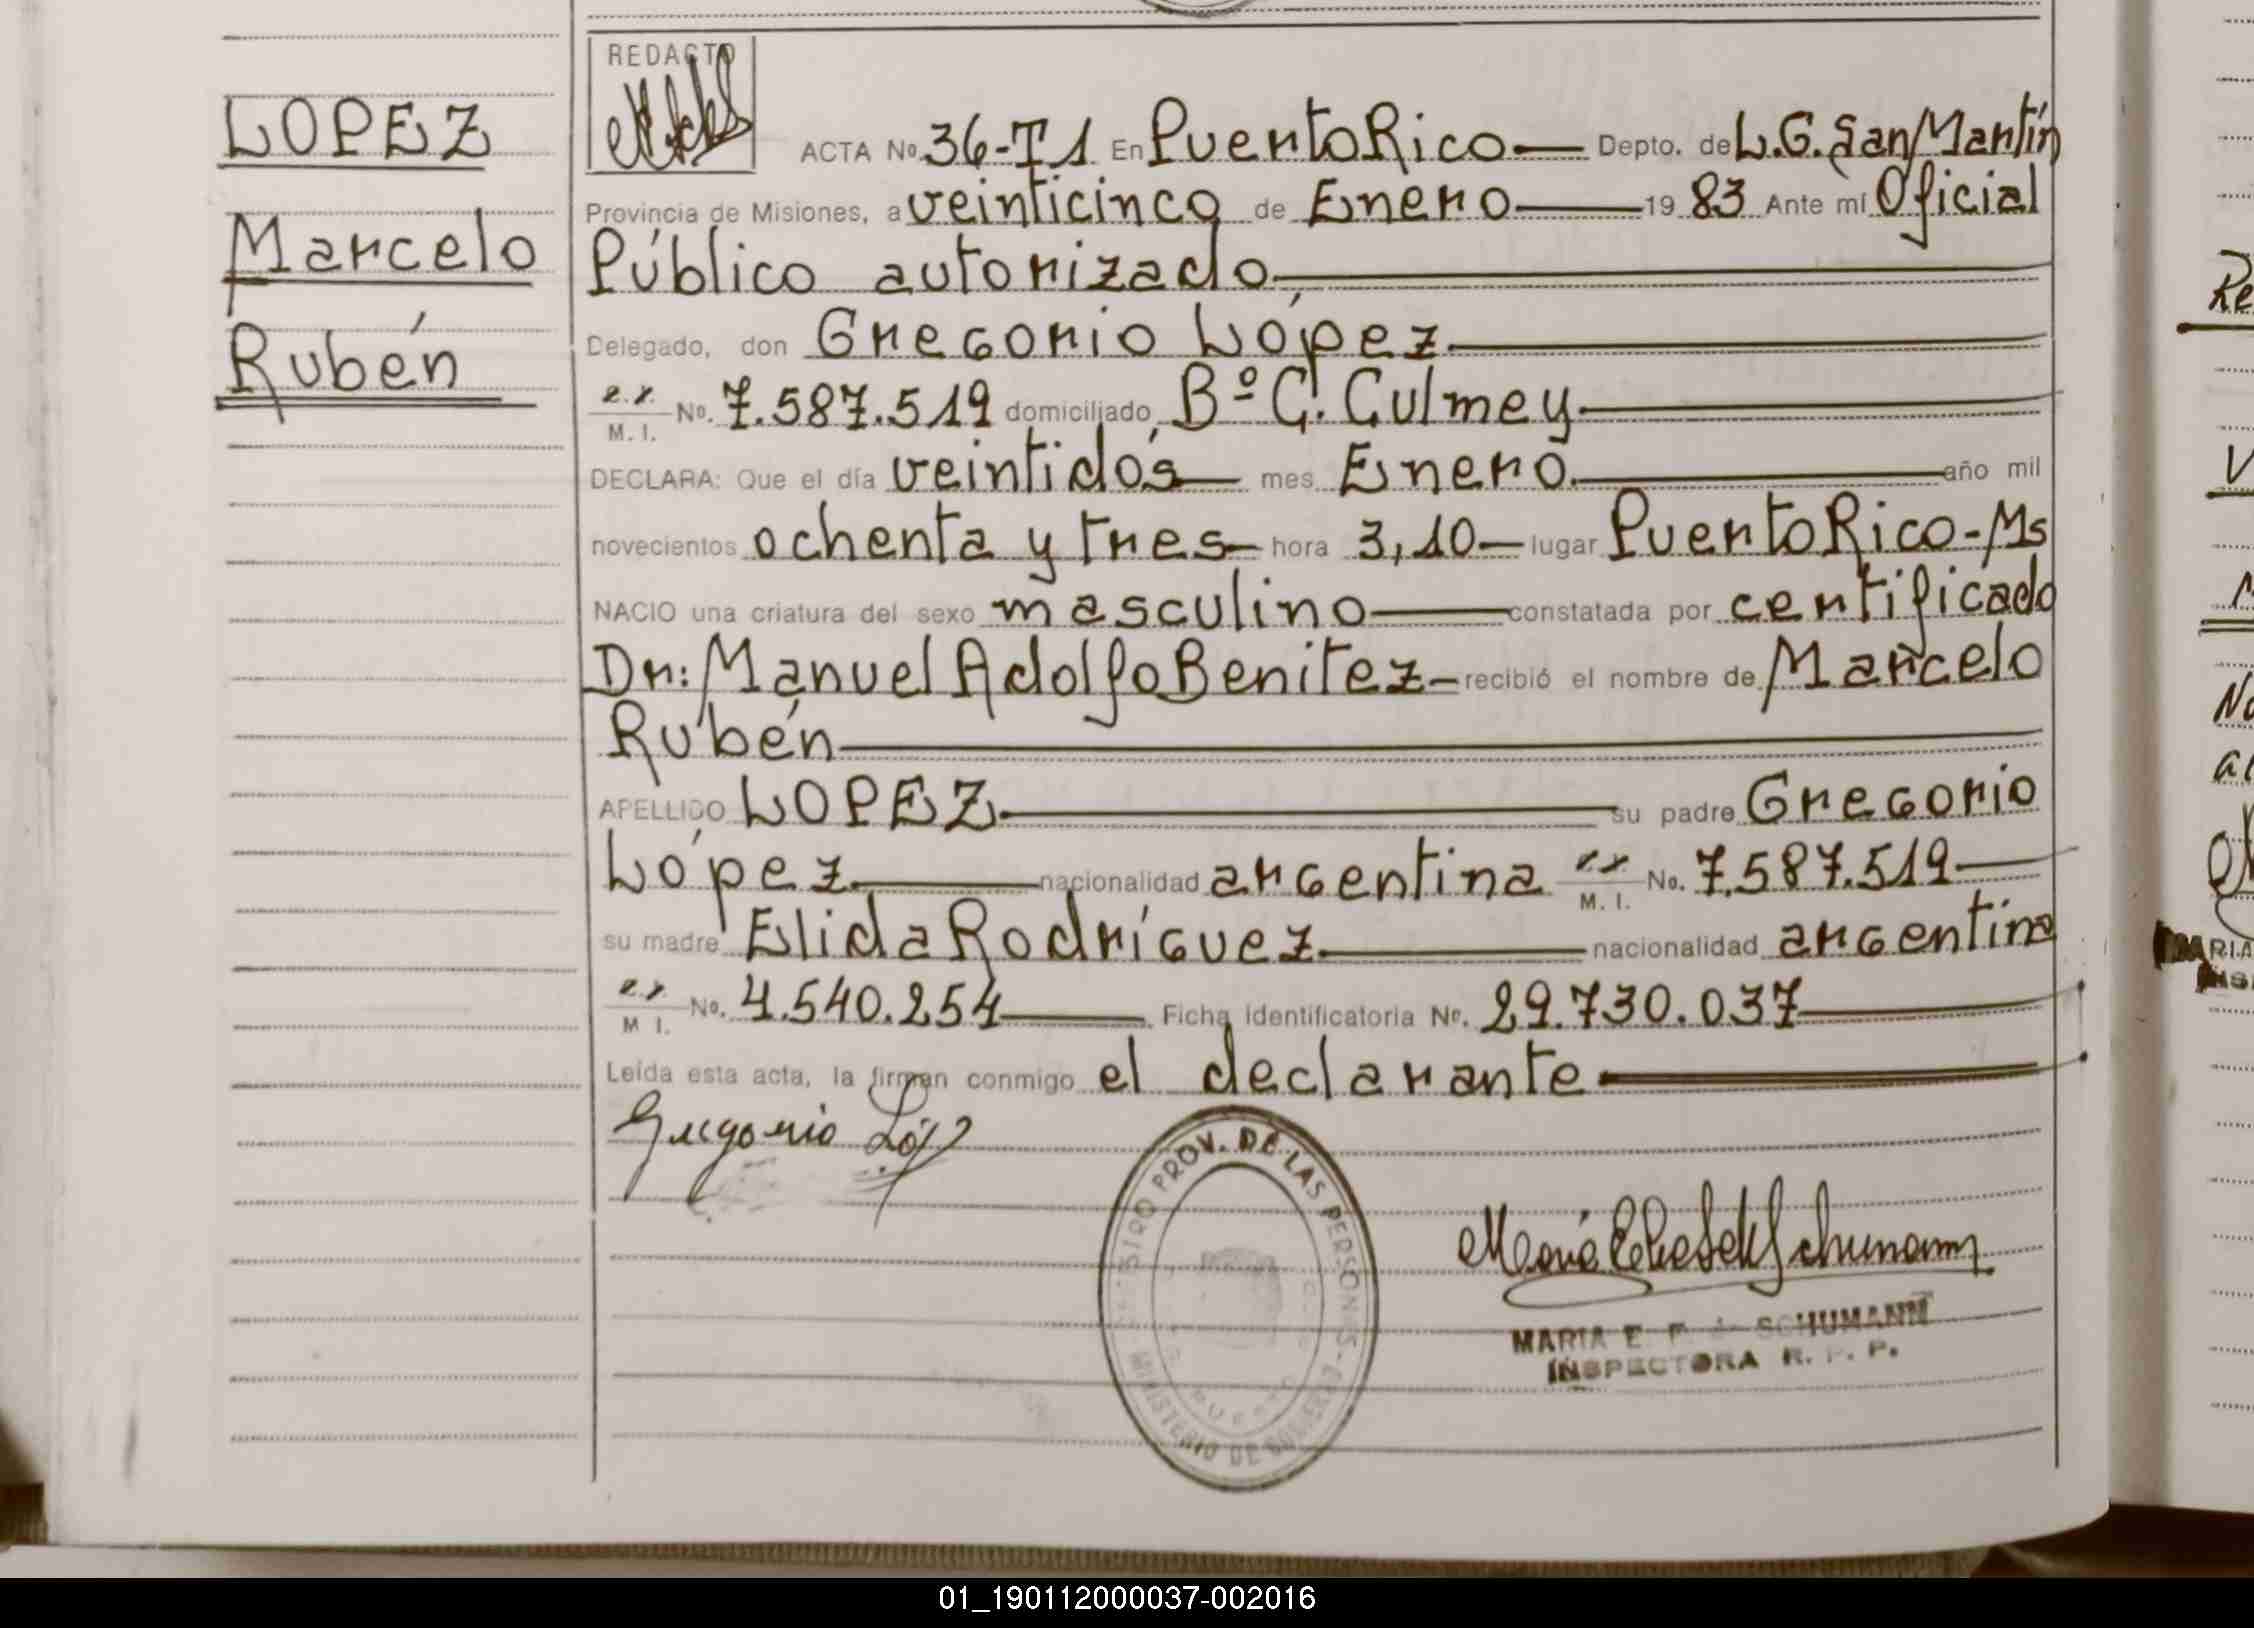 LOPEZ
Marcelo
Rubén
REDACTO
ACTA No. 36-T1 En Puerto Rico — Depto. de L.G. San Martín
Provincia de Misiones, a veinticinco de Enero — 19 83 Ante mí Oficial
Público autorizado
Delegado, don Gregorio López
M. I. No. 7.587.519 domiciliado Bº C. Culmey
DECLARA: Que el día veintidós — mes Enero — año mil
novecientos ochenta y tres — hora 3,10 — lugar Puerto Rico-Ms
NACIO una criatura del sexo masculino — constatada por certificado
Dr: Manuel Adolfo Benitez — recibió el nombre de Marcelo
Rubén
APELLIDO LOPEZ — su padre Gregorio
López — nacionalidad argentina M. I. No. 7.587.519 —
su madre Elida Rodríguez — nacionalidad argentina
M I. No. 4.540.254 — Ficha identificatoria No. 29.730.037 —
Leída esta acta, la firman conmigo el declarante
Gregorio López
PROV. DE LAS PERSONAS - MINISTERIO DE GOBIERNO
Schumann
MARIA E. F. SCHUMANN
INSPECTORA R. P. P.
01_190112000037-002016